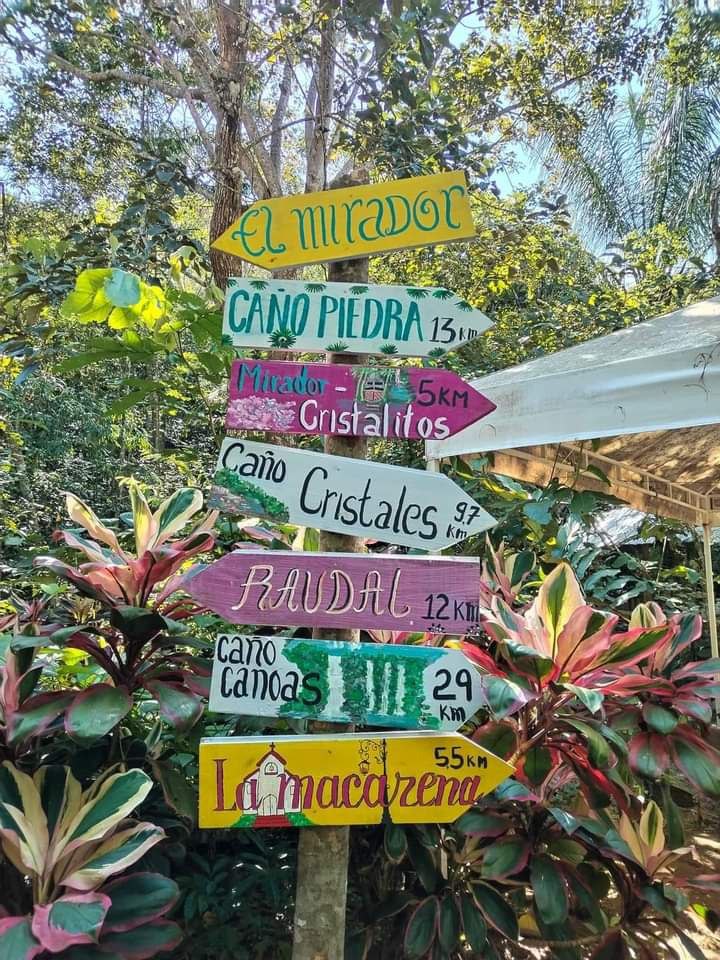 El mirador
CAÑO PIEDRA 13 KM
Mirador - 5KM
Cristalitos
Caño
Cristales 9,7
KM
RAUDAL 12KM
caño
canoas 29
KM
55KM
La macarena